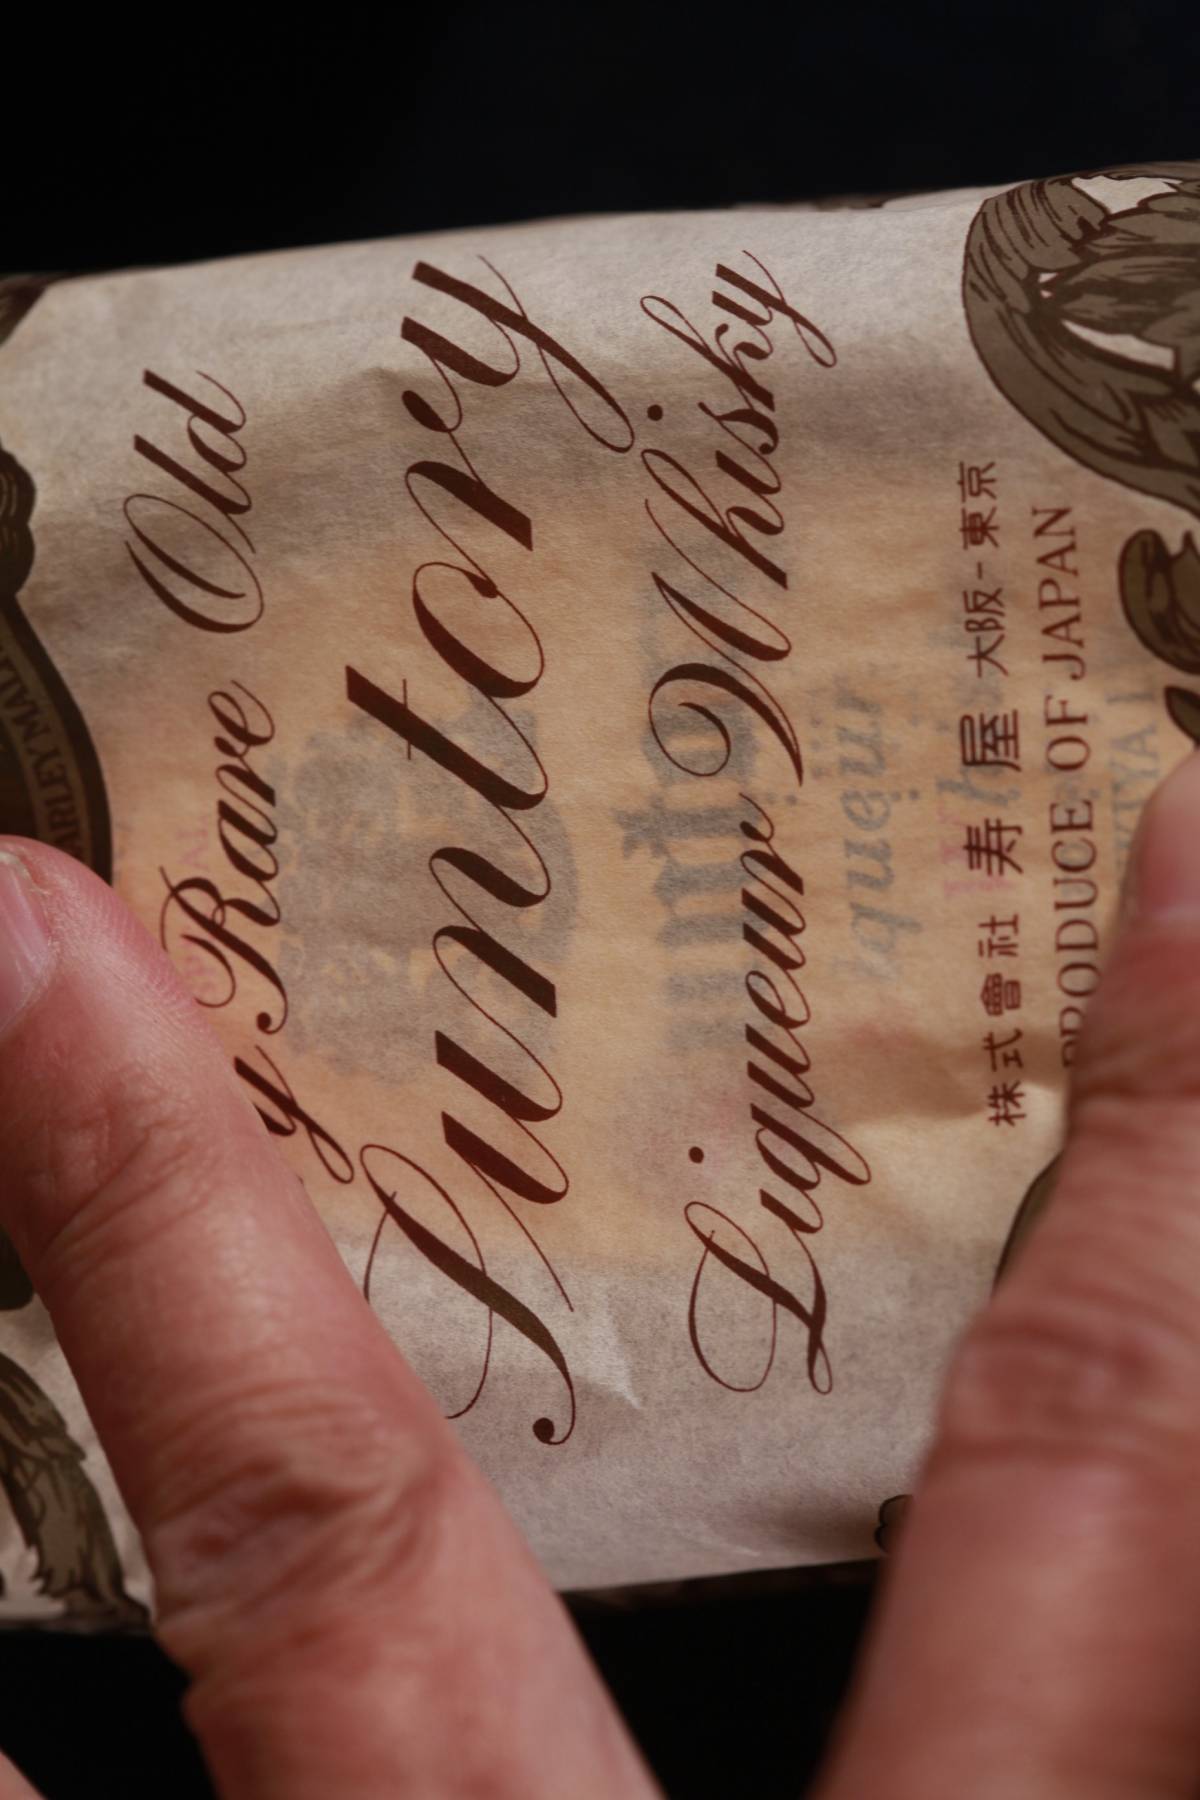 y Rare Old
Suntory
Liqueur Whisky
株式會社 寿屋 大阪-東京
PRODUCE OF JAPAN